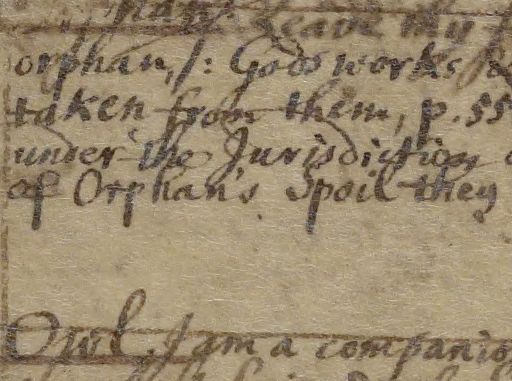 Leave my
orphan, /: Gods works
taken from them, p. 55
under the Jurisdiction
of Orphan's Spoil they
Owl, I am a companion